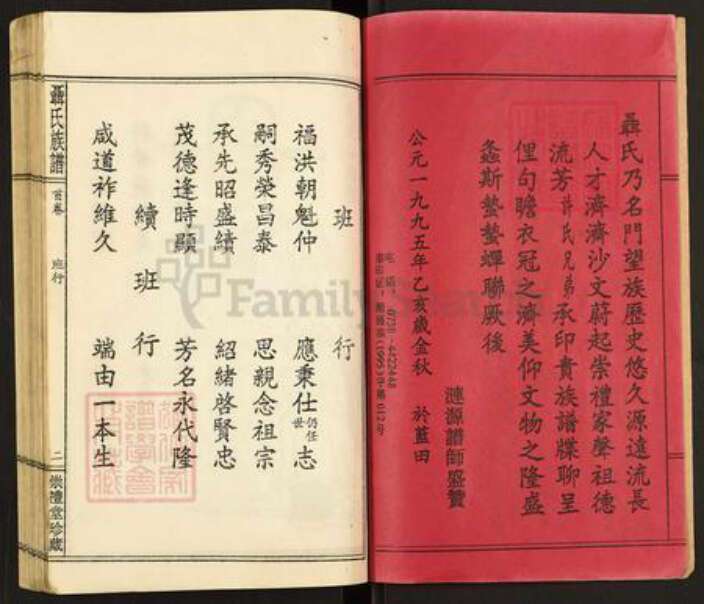 聶氏乃名門望族歷史悠久源遠流長
人才濟濟沙文蔚起崇禮家聲祖德
流芳許氏兄弟承印貴族譜牒聊呈
俚句瞻衣冠之濟美仰文物之隆盛
螽斯蟄蟄蟬聯厥後
漣源譜師盛贊
公元一九九五年乙亥歲金秋 於藍田
班行
福洪朝魁仲 應秉仕仍任世志
嗣秀榮昌泰 思親念祖宗
承先昭盛績 紹緒啓賢忠
茂德逢時顯 芳名永代隆
續班行
咸道祚維久 端由一本生
聶氏族譜 首卷 班行 二 崇禮堂珍藏